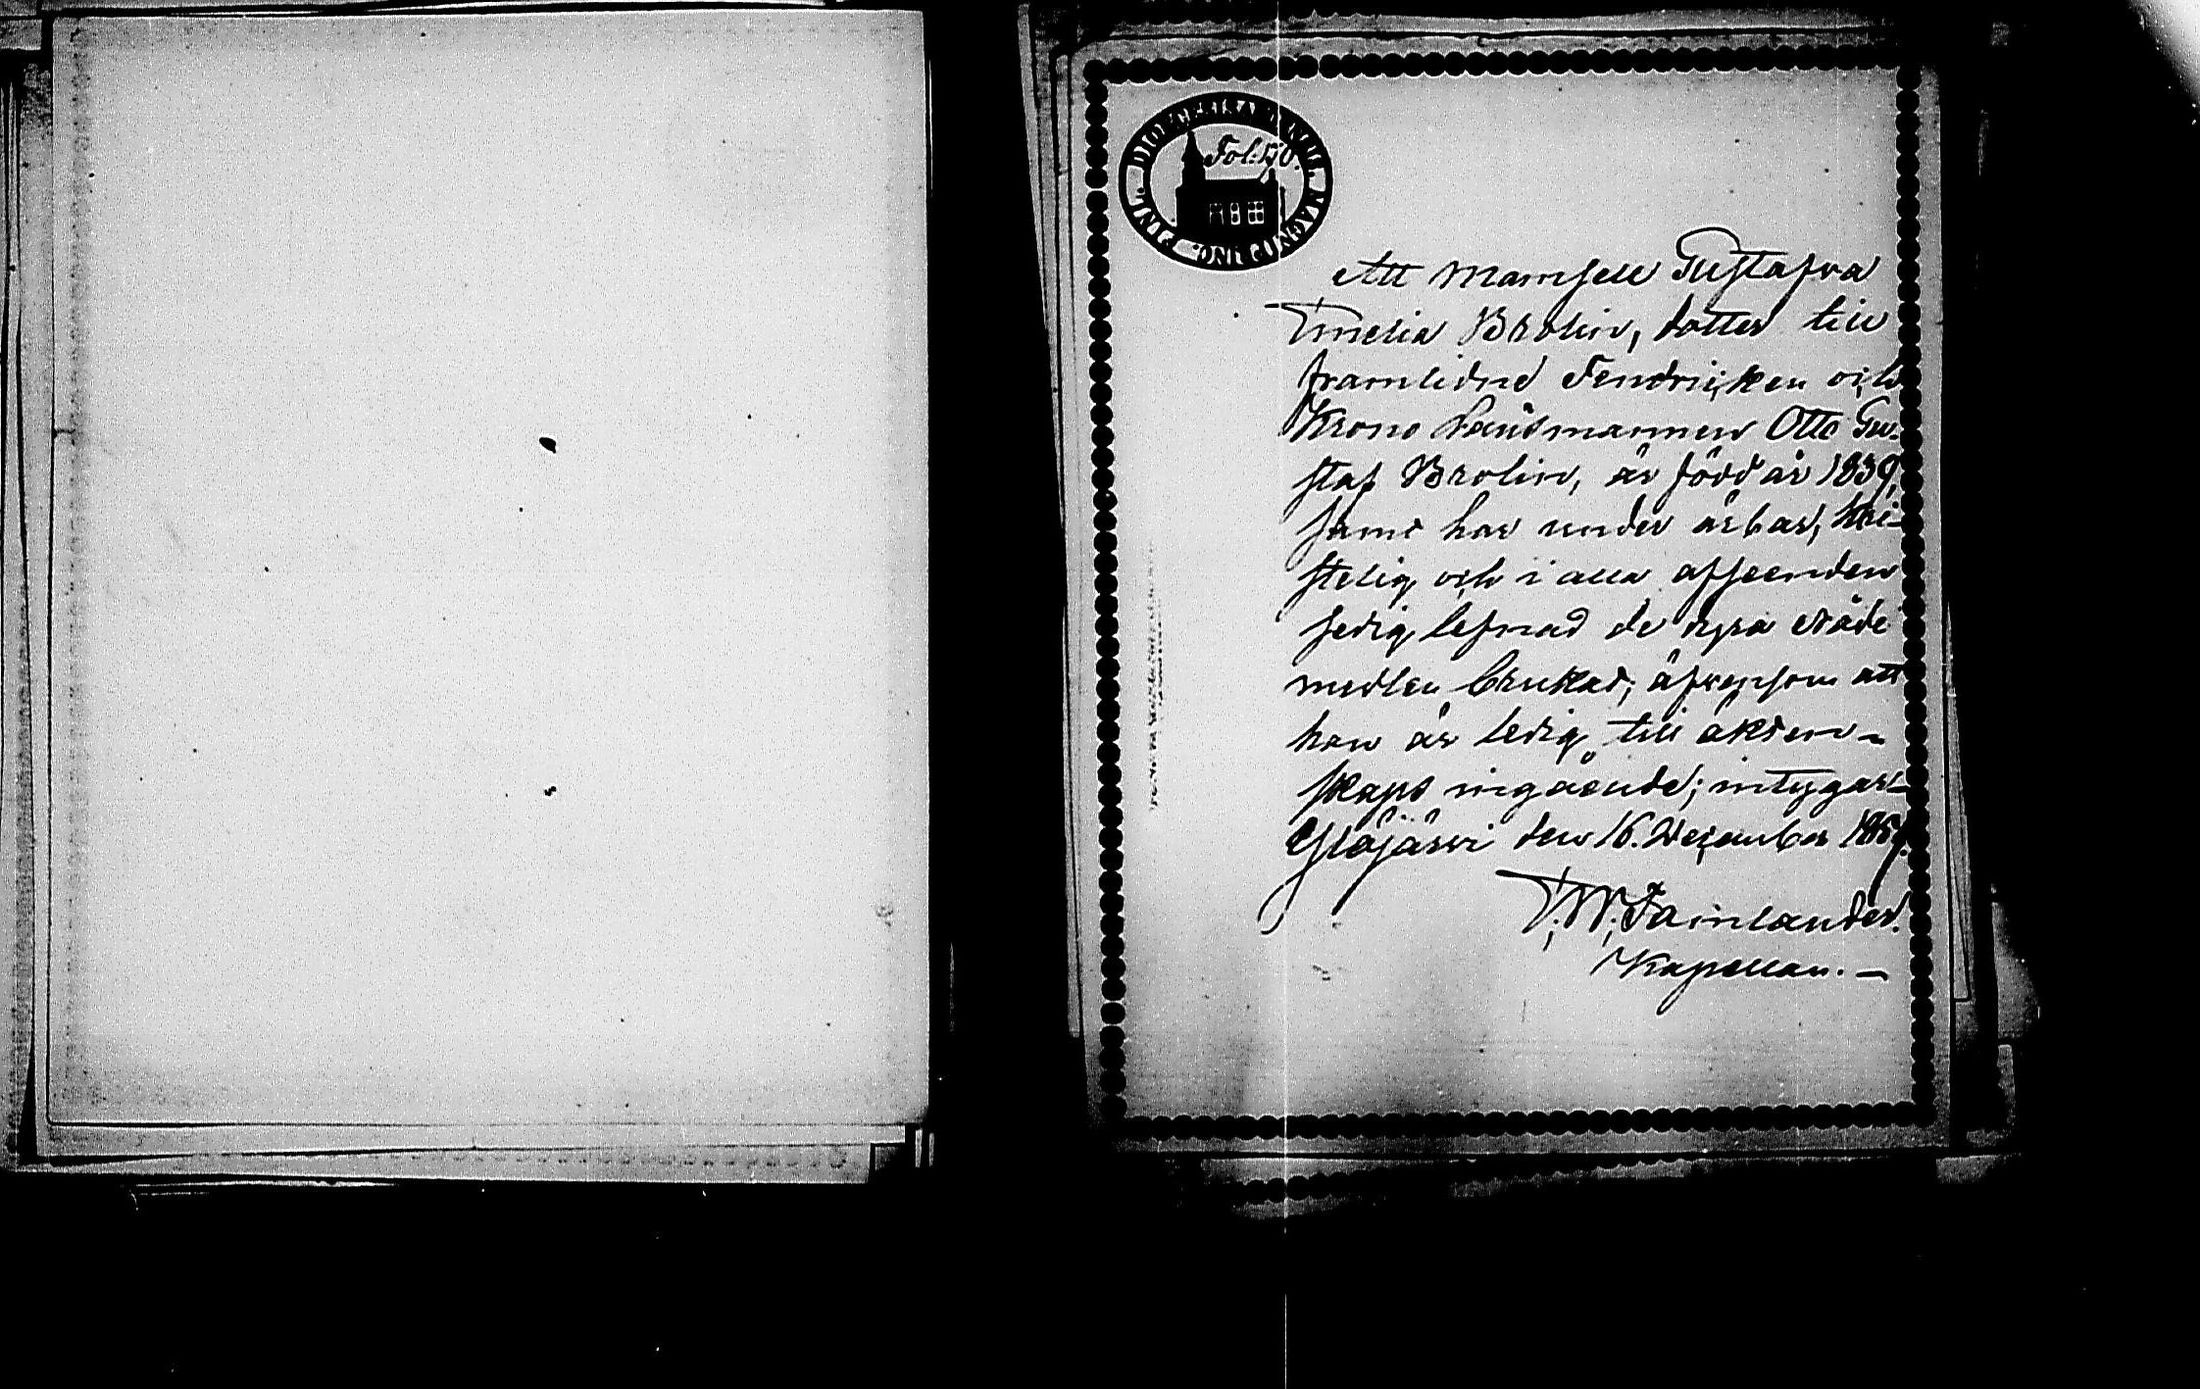 Fol: 50.
Att Mamsell Gustafva
Emelia Brolin, dotter till
framlidne Fendricken och
Krono Länsmannen Otto Gu-
staf Brolin, är född år 1839,
samt har under ärbar, kri-
stelig och i alla afseenden
sedig lefnad de dyra Nåde
medlen brukat; äfvensom att
hon är ledig till äkten-
skaps ingående; intygar-
Ylöjärvi den 16. December 1859.
Kapellan.-